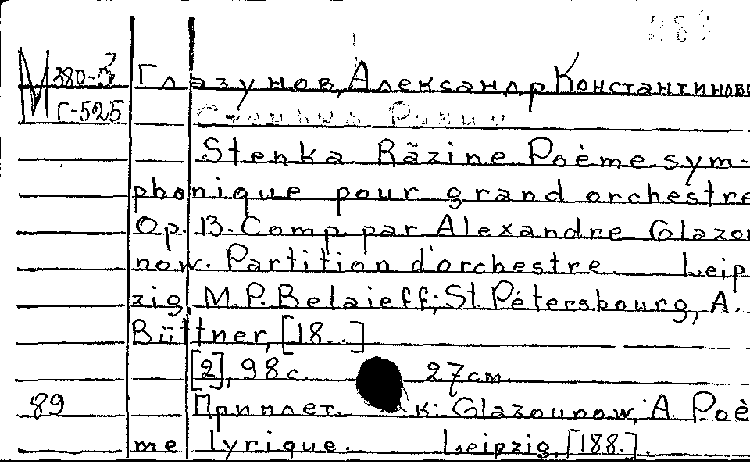 М 280-3 Глазунов, Александр Константинов
Г-525
Stenka Răzine Poème sym-
phonique pour grand orchestre
Op. 13. Comp. par Alexandre Glazou
now. Partition d'orchestre. Leip
zig, M.P. Belaieff; St. Pétersbourg, A.
Büttner, [18..]
[2], 98 с. 27 см.
89 Приплет. к: Glazounow, A. Poè
me lyrique. Leipzig, [188.]